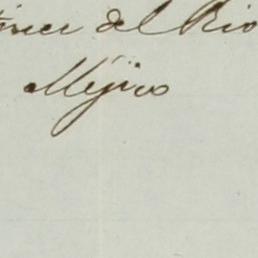 del Rio
Méjico